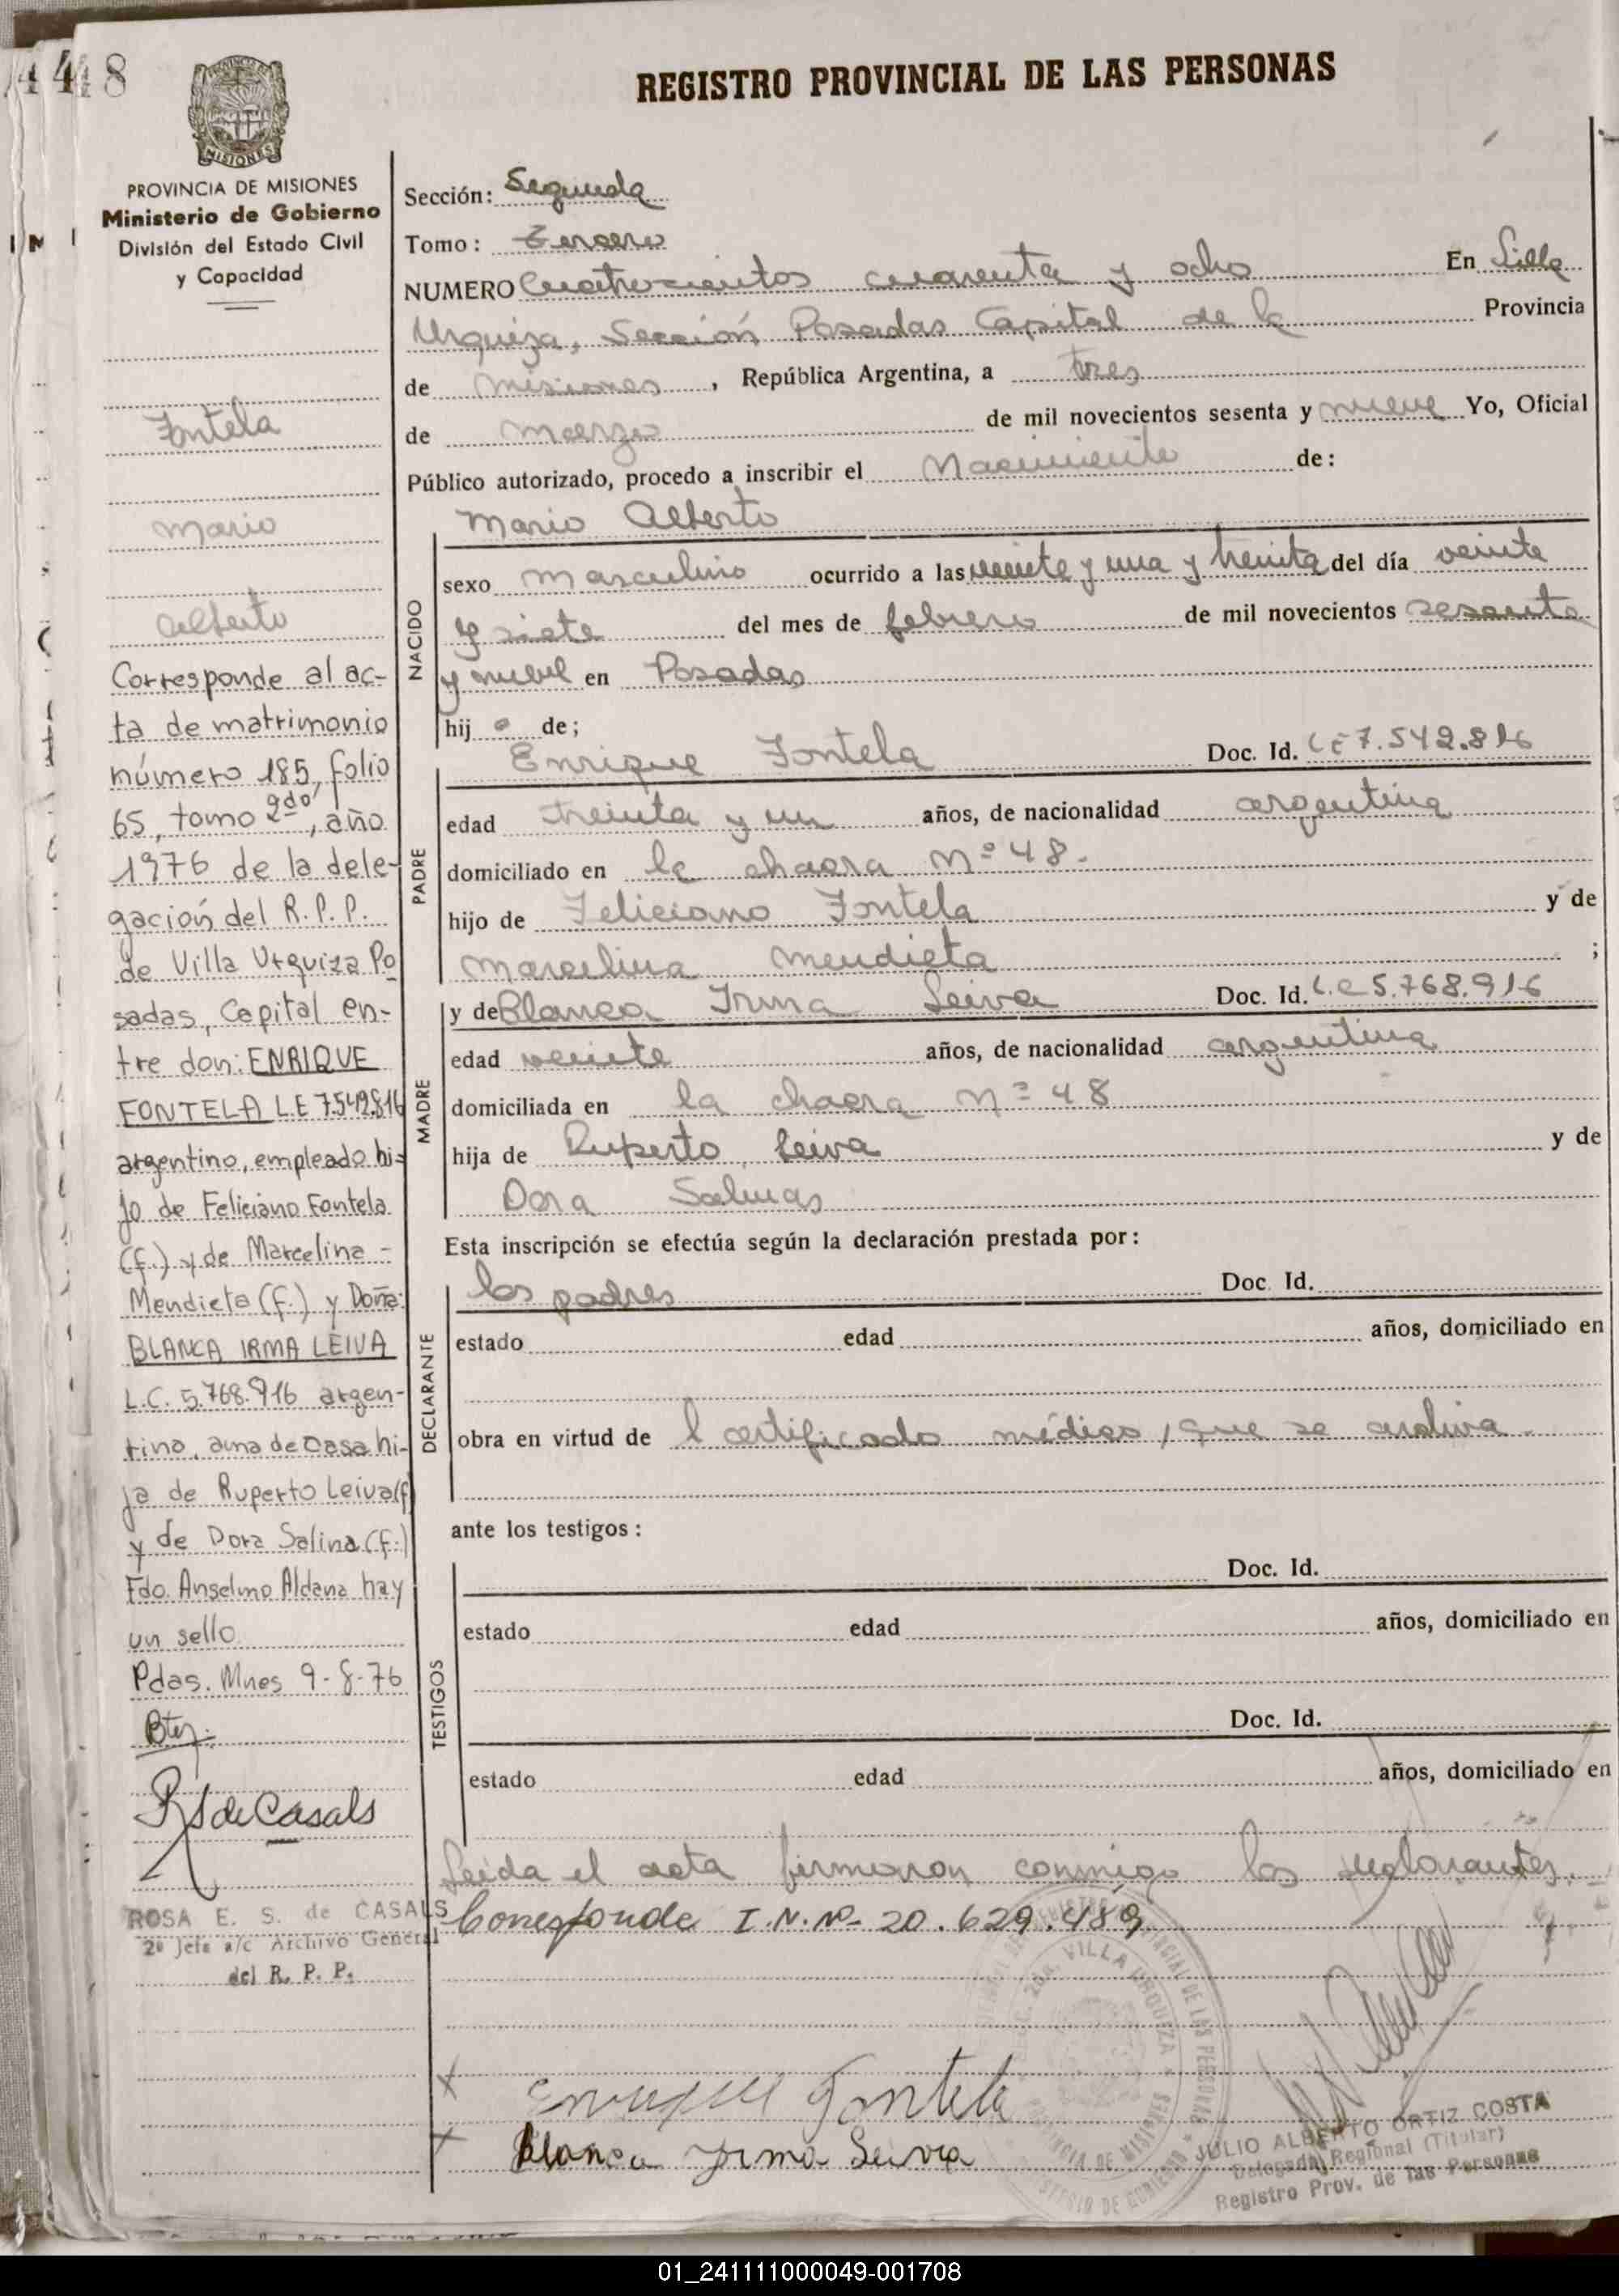 448
REGISTRO PROVINCIAL DE LAS PERSONAS
MISIONES
PROVINCIA DE MISIONES
Ministerio de Gobierno
División del Estado Civil
y Capacidad
Fontela
Mario
Alberto
Corresponde al ac-
ta de matrimonio
número 185, folio
65, tomo 2do, año
1976 de la dele-
gación del R.P.P.
de Villa Urquiza Po
sadas, Capital en-
tre don: ENRIQUE
FONTELA L.E 7.542.816
argentino, empleado hi-
jo de Feliciano Fontela
(f.) y de Marcelina -
Mendieta (f.) y Doña:
BLANCA IRMA LEIVA
L.C. 5.768.916 argen-
tino, ama de casa hi-
ja de Ruperto Leiva (f)
y de Dora Salina (f.)
Fdo. Anselmo Aldana hay
un sello
Pdas. Mnes 9-8-76
Btez.
RS de Casals
ROSA E. S. de CASALS
2º Jefe a/c Archivo General
del R. P. P.
Sección: Segunda
Tomo: Tercero
NUMERO Cuatrocientos cuarenta y ocho En Villa
Urquiza, Sección Posadas Capital de la Provincia
de Misiones, República Argentina, a tres
de marzo de mil novecientos sesenta y nueve Yo, Oficial
Público autorizado, procedo a inscribir el Nacimiento de:
NACIDO
Mario Alberto
sexo masculino ocurrido a las veinte y una y treinta del día veinte
y siete del mes de febrero de mil novecientos sesenta
y nueve en Posadas
hijo de;
PADRE
Enrique Fontela Doc. Id. LE 7.542.816
edad treinta y un años, de nacionalidad argentina
domiciliado en la chacra Nº 48.
hijo de Feliciano Fontela y de
Marcelina Mendieta ;
MADRE
y de Blanca Irma Leiva Doc. Id. L.C 5.768.916
edad veinte años, de nacionalidad argentina
domiciliada en la chacra Nº 48
hija de Ruperto Leiva y de
Dora Salinas
Esta inscripción se efectúa según la declaración prestada por:
DECLARANTE
los padres Doc. Id.
estado edad años, domiciliado en
obra en virtud de l certificado médico, que se archiva.
ante los testigos:
TESTIGOS
Doc. Id.
estado edad años, domiciliado en
Doc. Id.
estado edad años, domiciliado en
Leida el acta firmaron conmigo los declarantes.
Corresponde I.N.Nº 20.629.489
Enrique Fontela
Blanca Irma Leiva
VILLA URQUIZA
JULIO ALBERTO ORTIZ COSTA
Delegado Regional (Titular)
Registro Prov. de las Personas
01_241111000049-001708